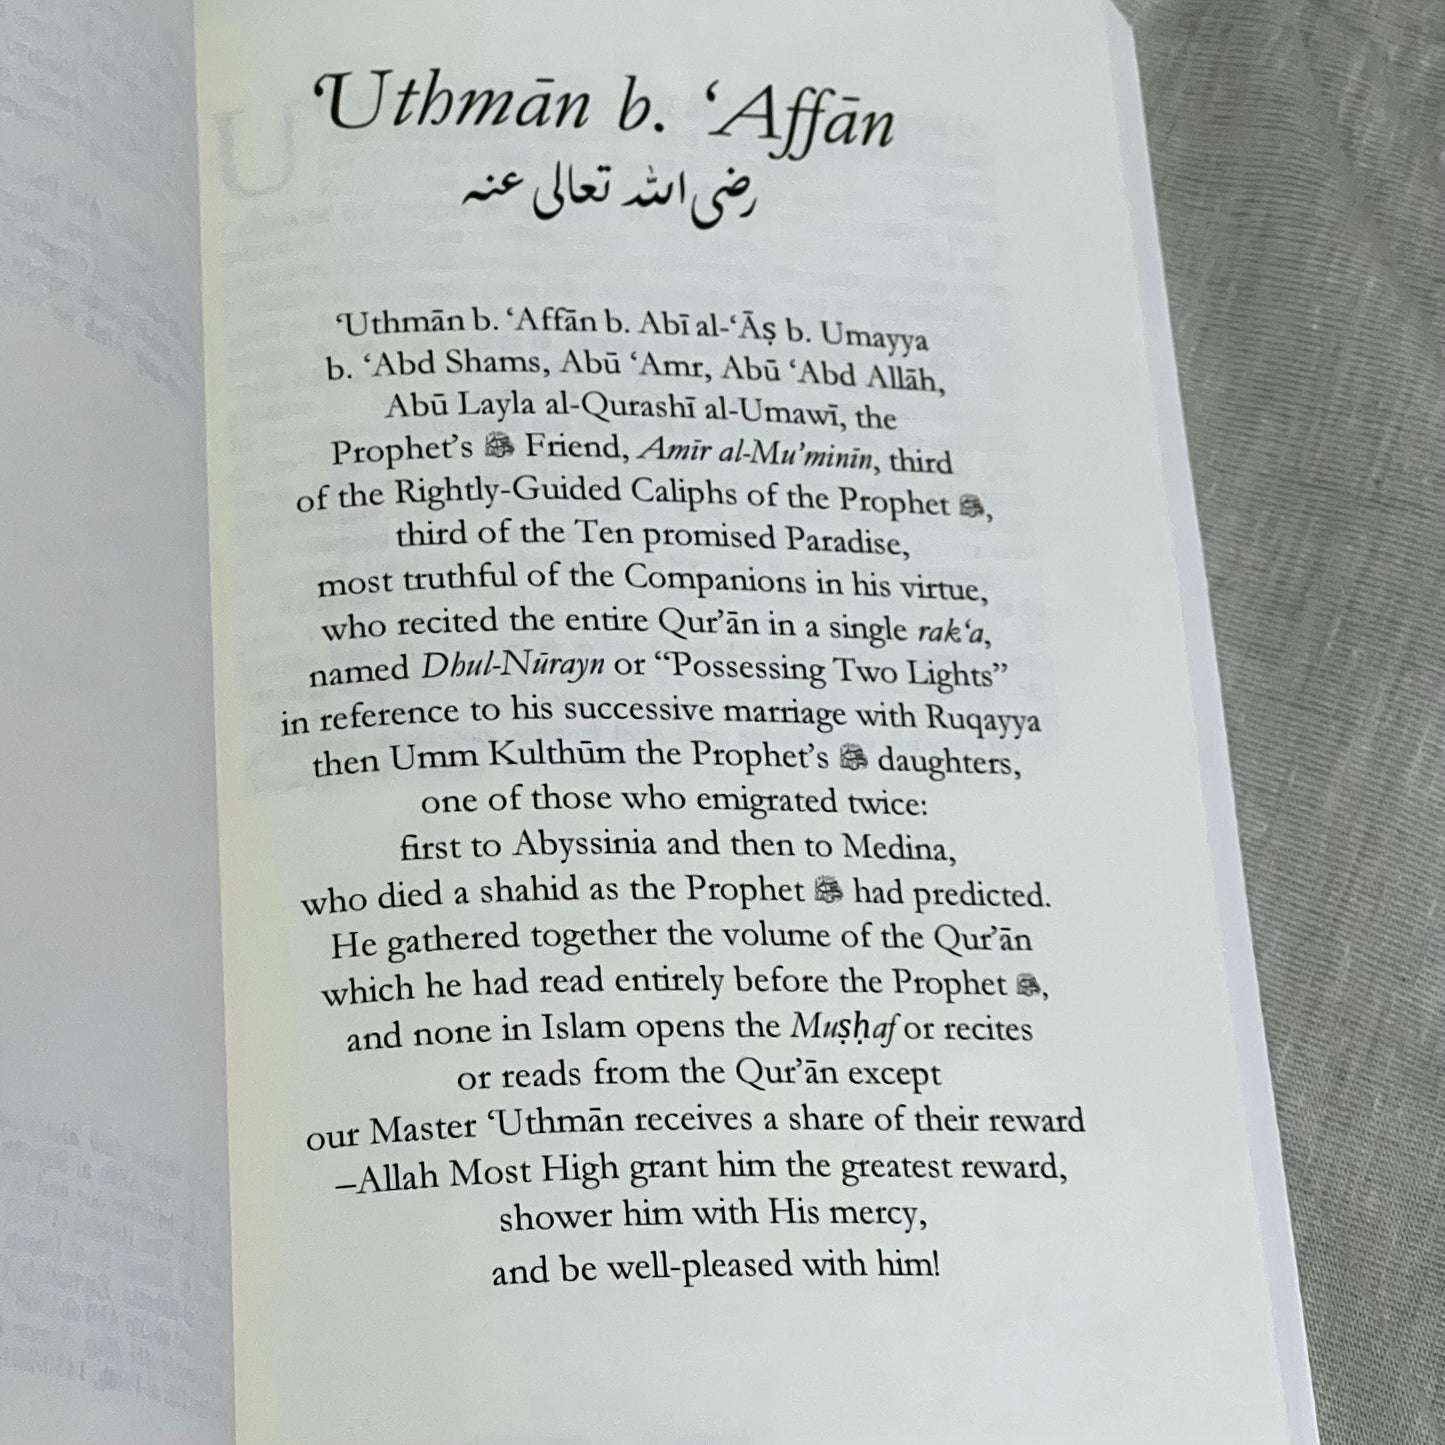 ‘Uthmān b. ‘Affān
رضي الله تعالى عنه
‘Uthmān b. ‘Affān b. Abī al-‘Āṣ b. Umayya
b. ‘Abd Shams, Abū ‘Amr, Abū ‘Abd Allāh,
Abū Layla al-Qurashī al-Umawī, the
Prophet’s ﷺ Friend, Amīr al-Mu’minīn, third
of the Rightly-Guided Caliphs of the Prophet ﷺ,
third of the Ten promised Paradise,
most truthful of the Companions in his virtue,
who recited the entire Qur’ān in a single rak‘a,
named Dhul-Nūrayn or “Possessing Two Lights”
in reference to his successive marriage with Ruqayya
then Umm Kulthūm the Prophet’s ﷺ daughters,
one of those who emigrated twice:
first to Abyssinia and then to Medina,
who died a shahid as the Prophet ﷺ had predicted.
He gathered together the volume of the Qur’ān
which he had read entirely before the Prophet ﷺ,
and none in Islam opens the Muṣḥaf or recites
or reads from the Qur’ān except
our Master ‘Uthmān receives a share of their reward
–Allah Most High grant him the greatest reward,
shower him with His mercy,
and be well-pleased with him!